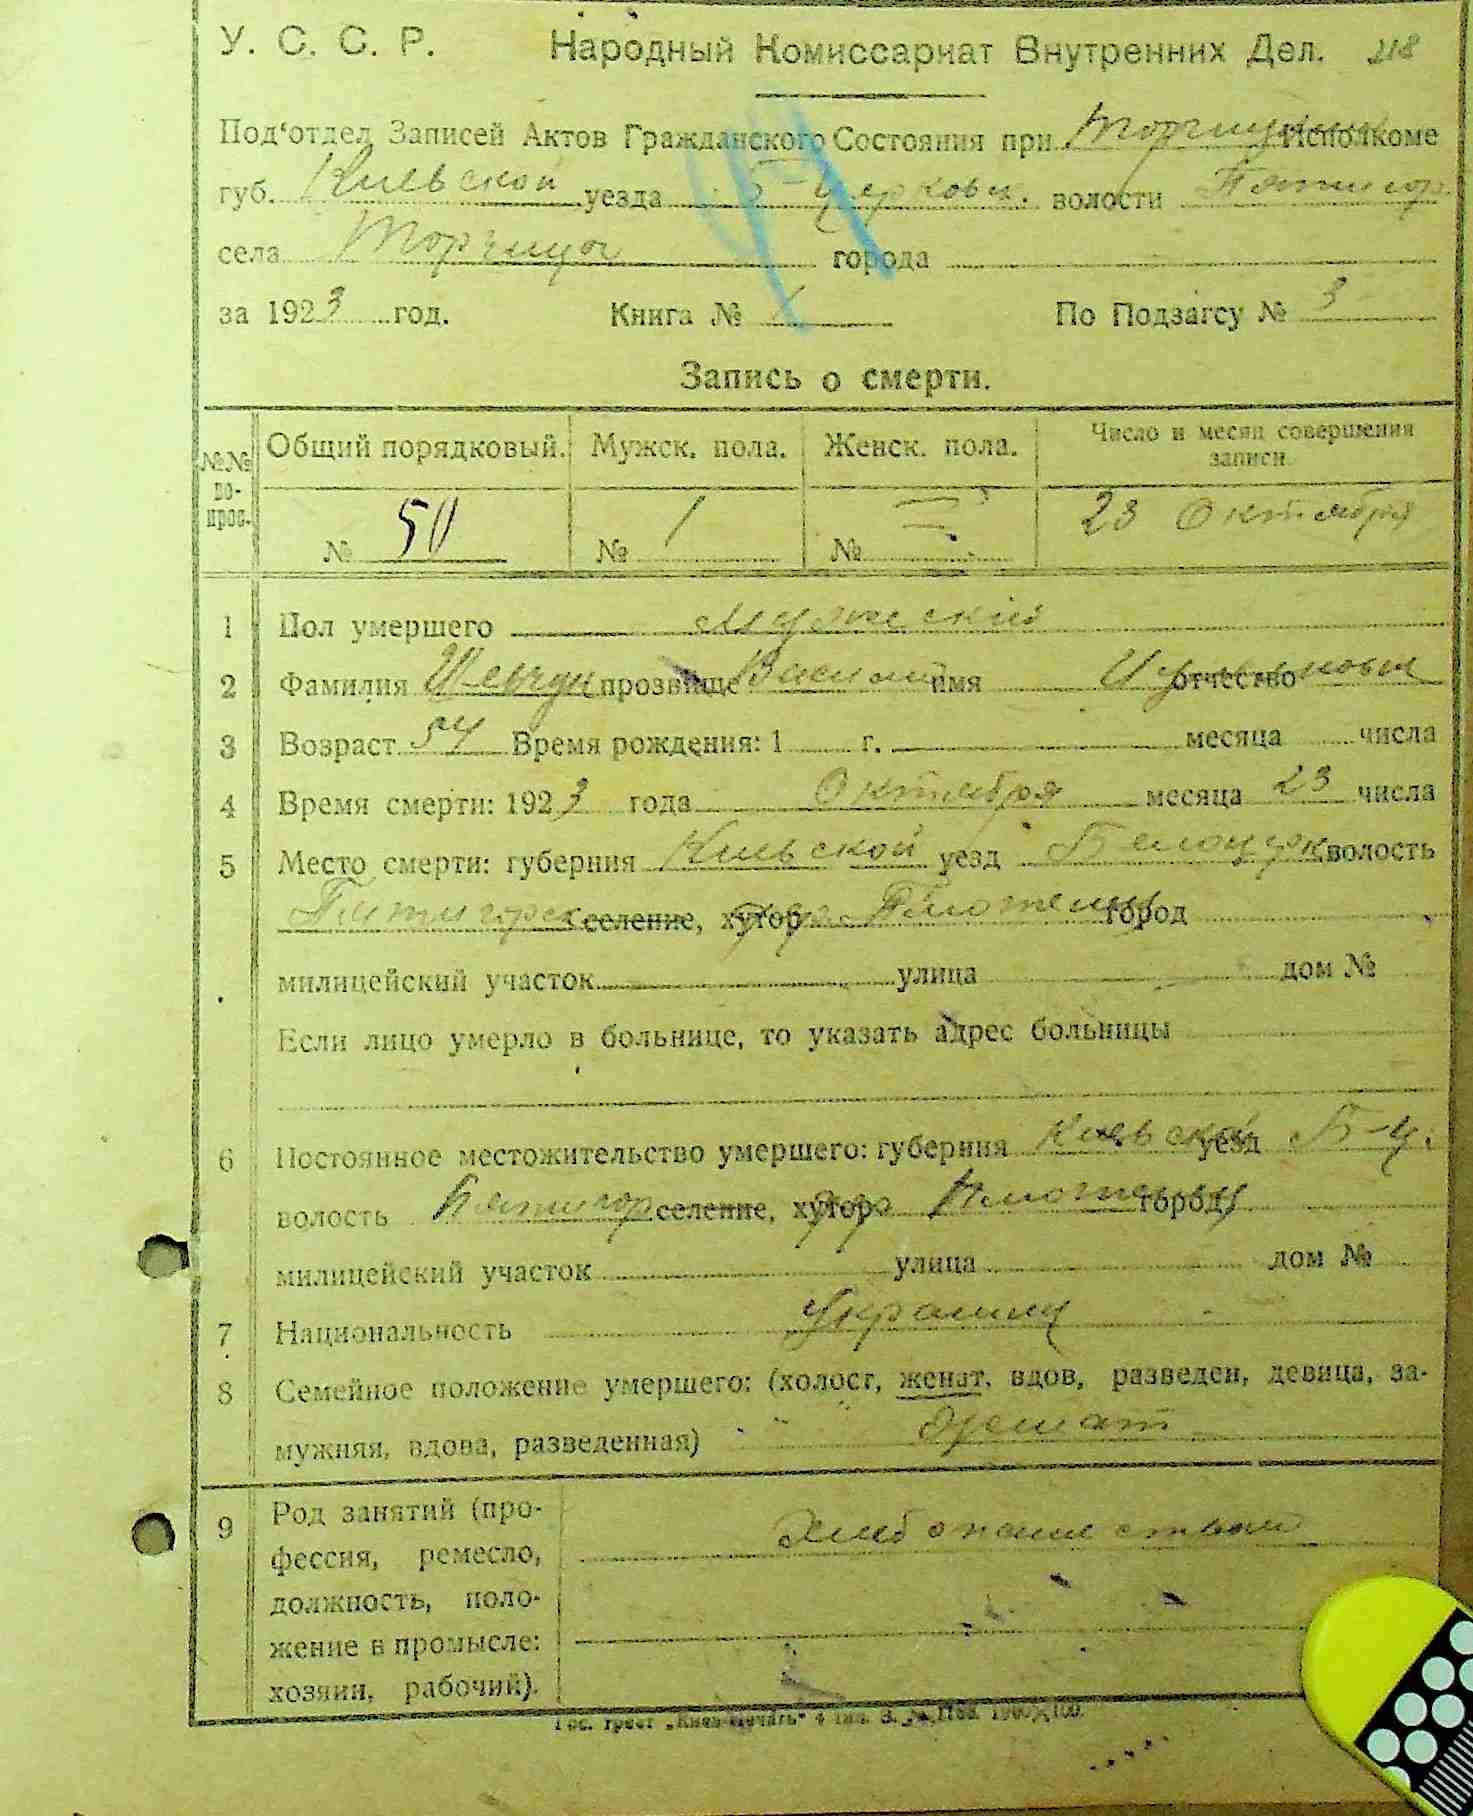 У. С. С. Р. Народный Комиссариат Внутренних Дел. 218
Под'отдел Записей Актов Гражданского Состояния при Исполкоме
губ. Киевской уезда Б-Церковск. волости Пятигор.
села Торчица города
за 1923 год. Книга № 1 По Подзагсу № 3
Запись о смерти.
№№ вопрос. Общий порядковый. Мужск. пола. Женск. пола. Число и месяц совершения записи.
№ 50 № 1 № 23 Октября
1 Пол умершего Мужеский
2 Фамилия Шевчук прозвище Василий имя отчество
3 Возраст 54 Время рождения: 1 г. месяца числа
4 Время смерти: 1923 года Октября месяца 23 числа
5 Место смерти: губерния Киевской уезд Белоцерк волость
Пятигорск селение, хутор город
милицейский участок улица дом №
Если лицо умерло в больнице, то указать адрес больницы
6 Постоянное местожительство умершего: губерния Киевской уезд Б-Ц.
волость Пятигор селение, хутор город
милицейский участок улица дом №
7 Национальность Украинец
8 Семейное положение умершего: (холост, женат, вдов, разведен, девица, за-
мужняя, вдова, разведенная) женат
9 Род занятий (про-
фессия, ремесло,
должность, поло-
жение в промысле:
хозяин, рабочий).
Хлебопашество
Гос. трест „Киев-Печать“